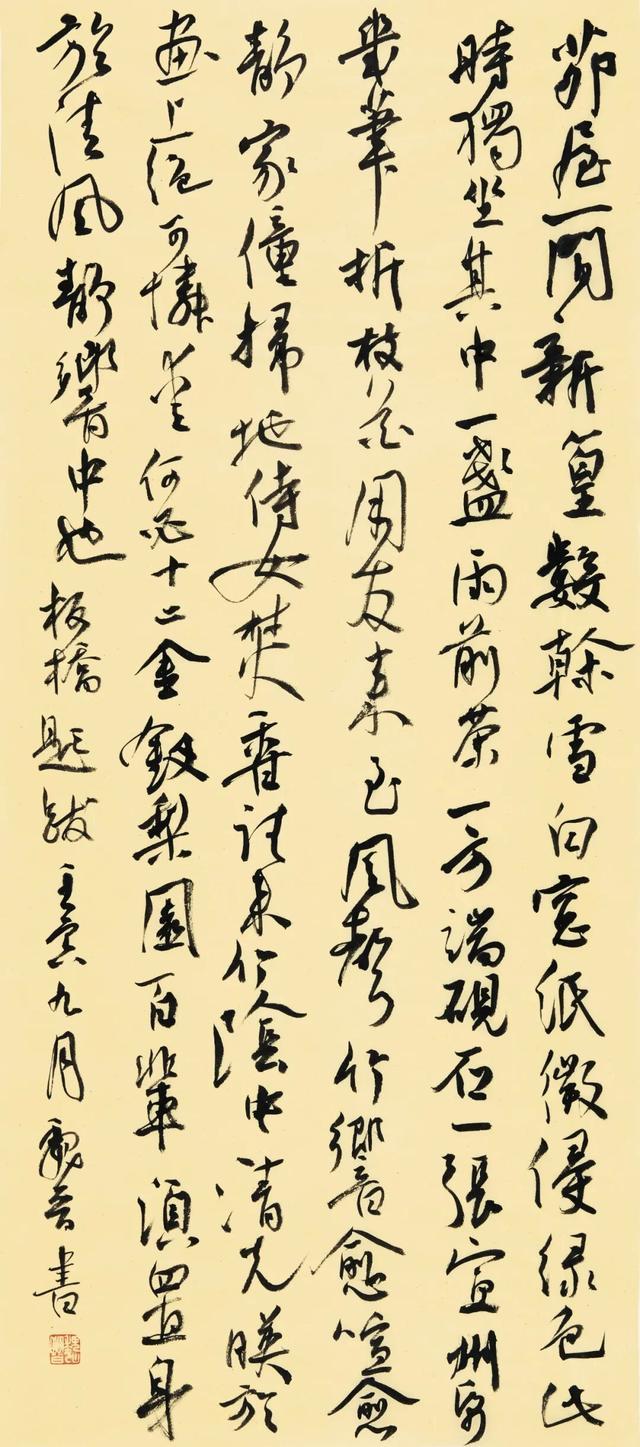 茆屋一間新篁數榦雪白窓紙微侵綠色此
時獨坐其中一盞雨前茶一方端硯石一張宣州帋
幾筆折枝花朋友來至風聲竹響愈喧愈
靜家僮掃地侍女焚香往來竹陰中清光暎於
畫上絕可憐愛何必十二金釵梨園百輩須置身
於清風靜響中也板橋題跋壬寅九月書